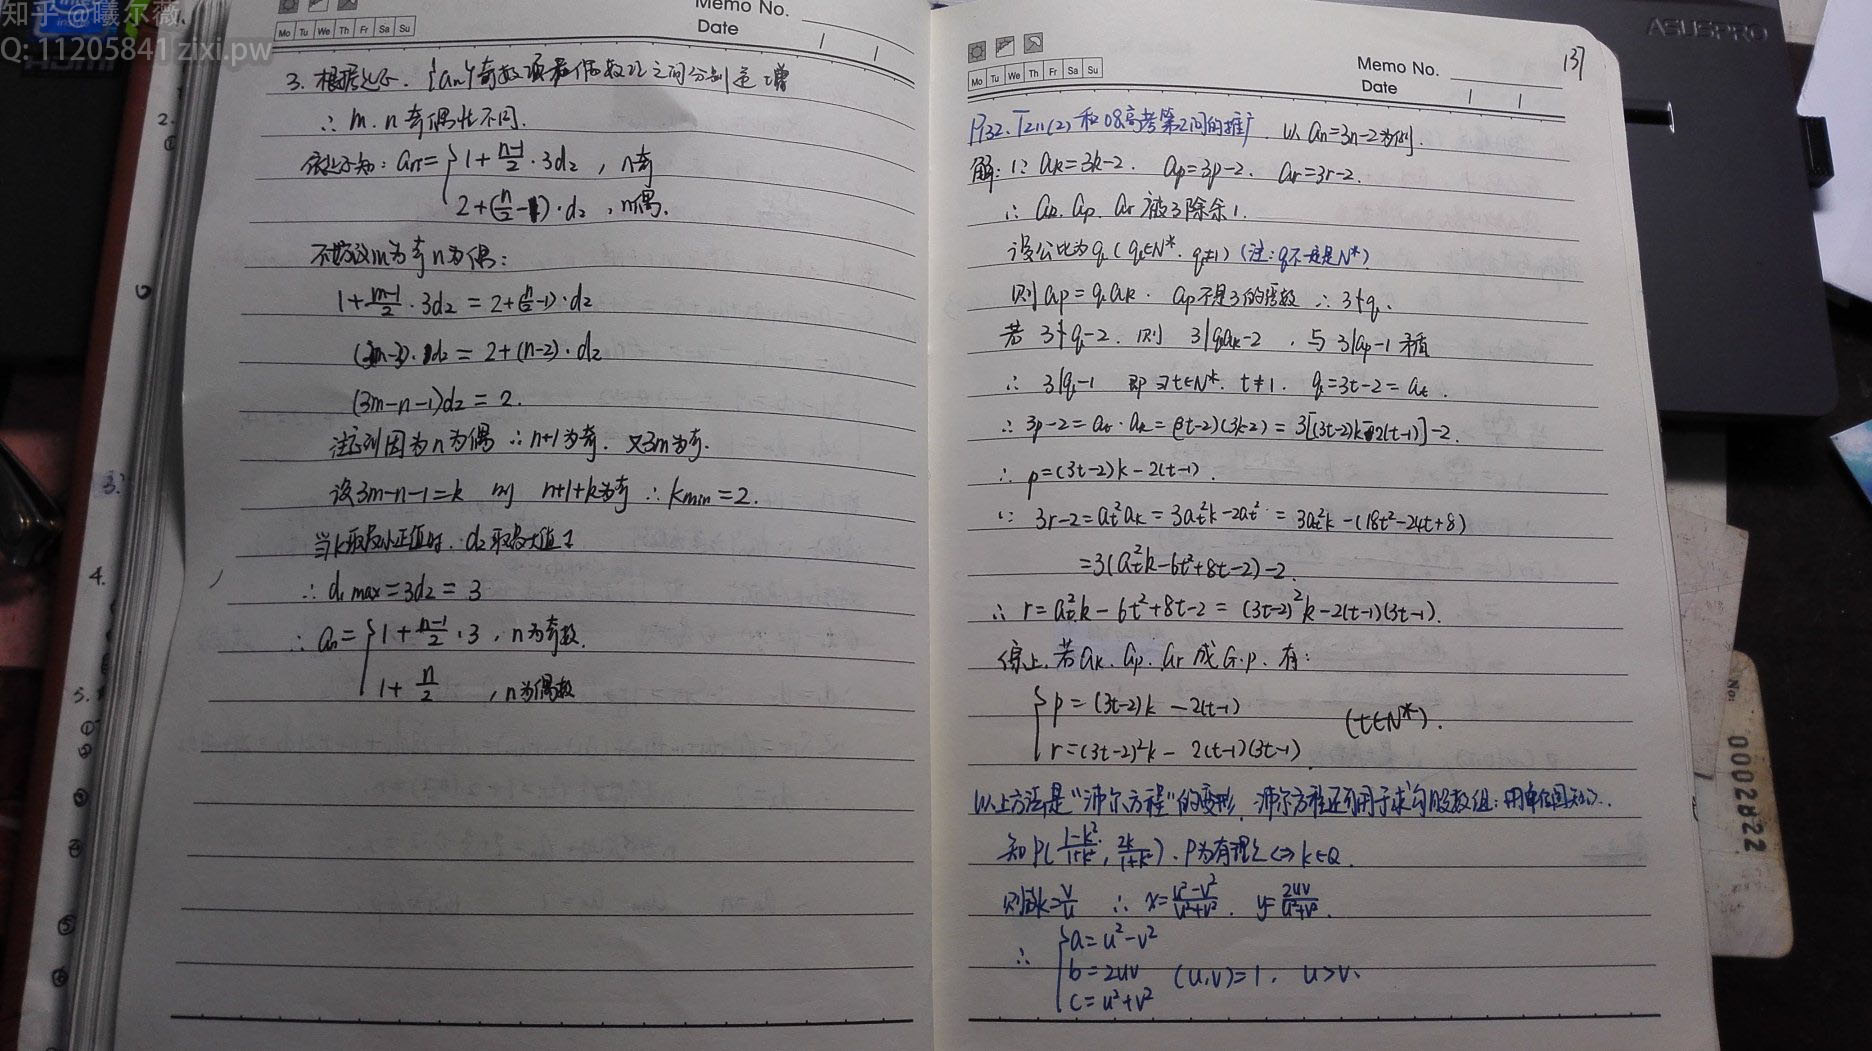 知乎 @曦尔薇
Q: 11205841 zixi.pw
Memo No.
Mo Tu We Th Fr Sa Su
Date
3. 根据 {an}奇数项和偶数项之间分别递增
∴ m、n 奇偶性不同.
an={1+(n-1)/2·3d2, n奇
2+(n/2-1)·d2, n偶.
不妨设m为奇n为偶:
1+(m-1)/2·3d2=2+(n/2-1)·d2
(3m-3)·d2=2+(n-2)·d2
(3m-n-1)d2=2.
注意到因为n为偶 ∴n+1为奇. 又3m为奇.
设3m-n-1=k 则 n+1+k为奇 ∴kmin=2.
当k取最小正值时, d2取最大值1
∴ d1 max=3d2=3
∴ an={1+(n-1)/2·3, n为奇数.
1+n/2, n为偶数
2.
3.
4.
5.
ASUSPRO
137
Memo No.
Mo Tu We Th Fr Sa Su
Date
P132. T211(2) 和08高考第2问的推广. 以 an=3n-2为例.
解: ∵ ak=3k-2. ap=3p-2. ar=3r-2.
∴ ak. ap. ar 被3除余1.
设公比为q (q∈N*. q≠1) (注: q不一定是N*)
则ap=qak. ap不是3的倍数 ∴3∤q.
若 3∤q-2. 则 3|qak-2, 与3|ap-1矛盾
∴ 3|q-1 即∃t∈N*. t≠1. q=3t-2=at.
∴ 3p-2=at·ak=(3t-2)(3k-2)=3[(3t-2)k-2(t-1)]-2.
∴ p=(3t-2)k-2(t-1).
∵ 3r-2=at²ak=3at²k-2at²=3at²k-(18t²-24t+8)
=3(at²k-6t²+8t-2)-2.
∴ r=at²k-6t²+8t-2=(3t-2)²k-2(t-1)(3t-1).
综上, 若ak. ap. ar成G.P. 有:
{p=(3t-2)k-2(t-1)
r=(3t-2)²k-2(t-1)(3t-1). (t∈N*).
以上方法是"沛尔方程"的变形. 沛尔方程还可用于求勾股数组: 用单位圆
知P((1-k²)/(1+k²), 2k/(1+k²)). P为有理点⇔k∈Q.
则设k=v/u ∴ x=(u²-v²)/(u²+v²). y=2uv/(u²+v²).
∴ {a=u²-v²
b=2uv (u,v)=1. u>v.
c=u²+v²
No:
0002822